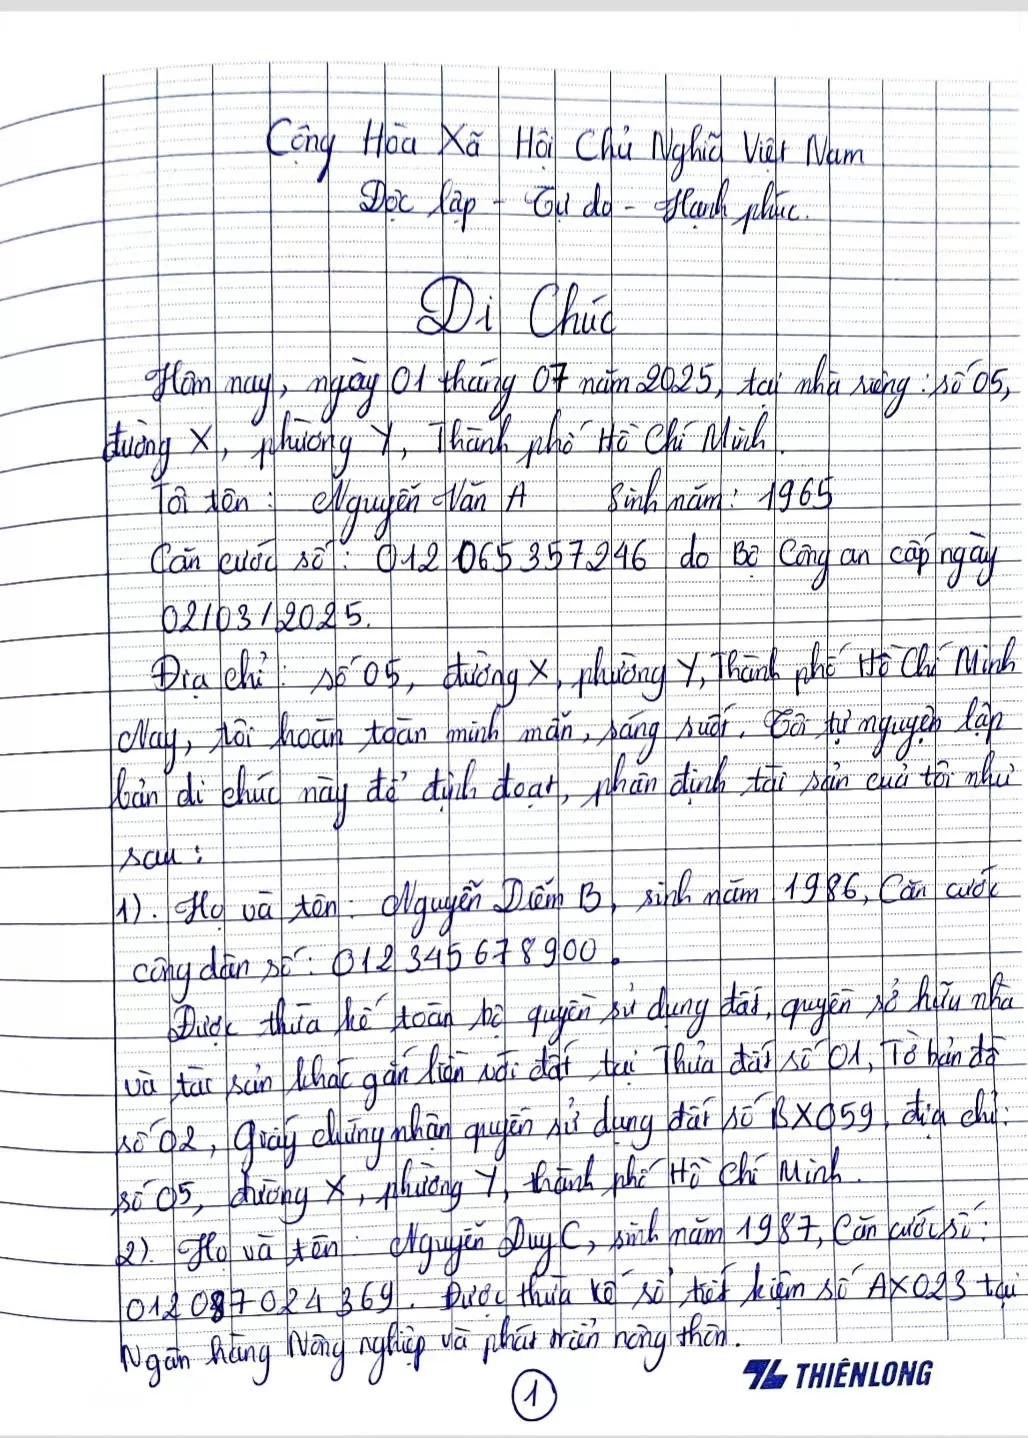 Cộng Hòa Xã Hội Chủ Nghĩa Việt Nam
Độc lập - Tự do - Hạnh phúc.
Di Chúc
Hôm nay, ngày 01 tháng 07 năm 2025, tại nhà riêng: số 05,
đường X, phường Y, Thành phố Hồ Chí Minh.
Tôi tên: Nguyễn Văn A Sinh năm: 1965
Căn cước số: 012065357246 do Bộ Công an cấp ngày
02/03/2025.
Địa chỉ: số 05, đường X, phường Y, Thành phố Hồ Chí Minh
Nay, tôi hoàn toàn minh mẫn, sáng suốt. Tôi tự nguyện lập
bản di chúc này để định đoạt, phân định tài sản của tôi như
sau:
1). Họ và tên: Nguyễn Diễm B, sinh năm 1986, Căn cước
công dân số: 012345678900.
Được thừa kế toàn bộ quyền sử dụng đất, quyền sở hữu nhà
và tài sản khác gắn liền với đất tại Thửa đất số 01, Tờ bản đồ
số 02, Giấy chứng nhận quyền sử dụng đất số BX059, địa chỉ:
số 05, đường X, phường Y, thành phố Hồ Chí Minh.
2). Họ và tên: Nguyễn Duy C, sinh năm 1987, Căn cước số:
012087024369. Được thừa kế sổ tiết kiệm số AX023 tại
Ngân hàng Nông nghiệp và phát triển nông thôn.
1
THIÊN LONG